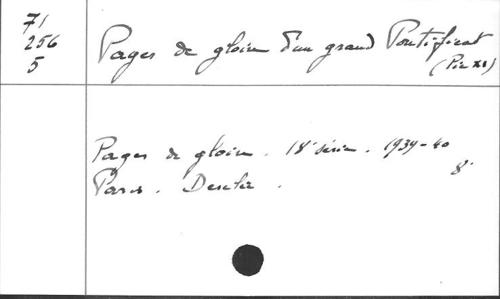 71
256
5
Pages de gloire d'un grand Pontificat
(Pie XI)
Pages de gloire. 18e série. 1939-40
8°
Paris. Desclée.